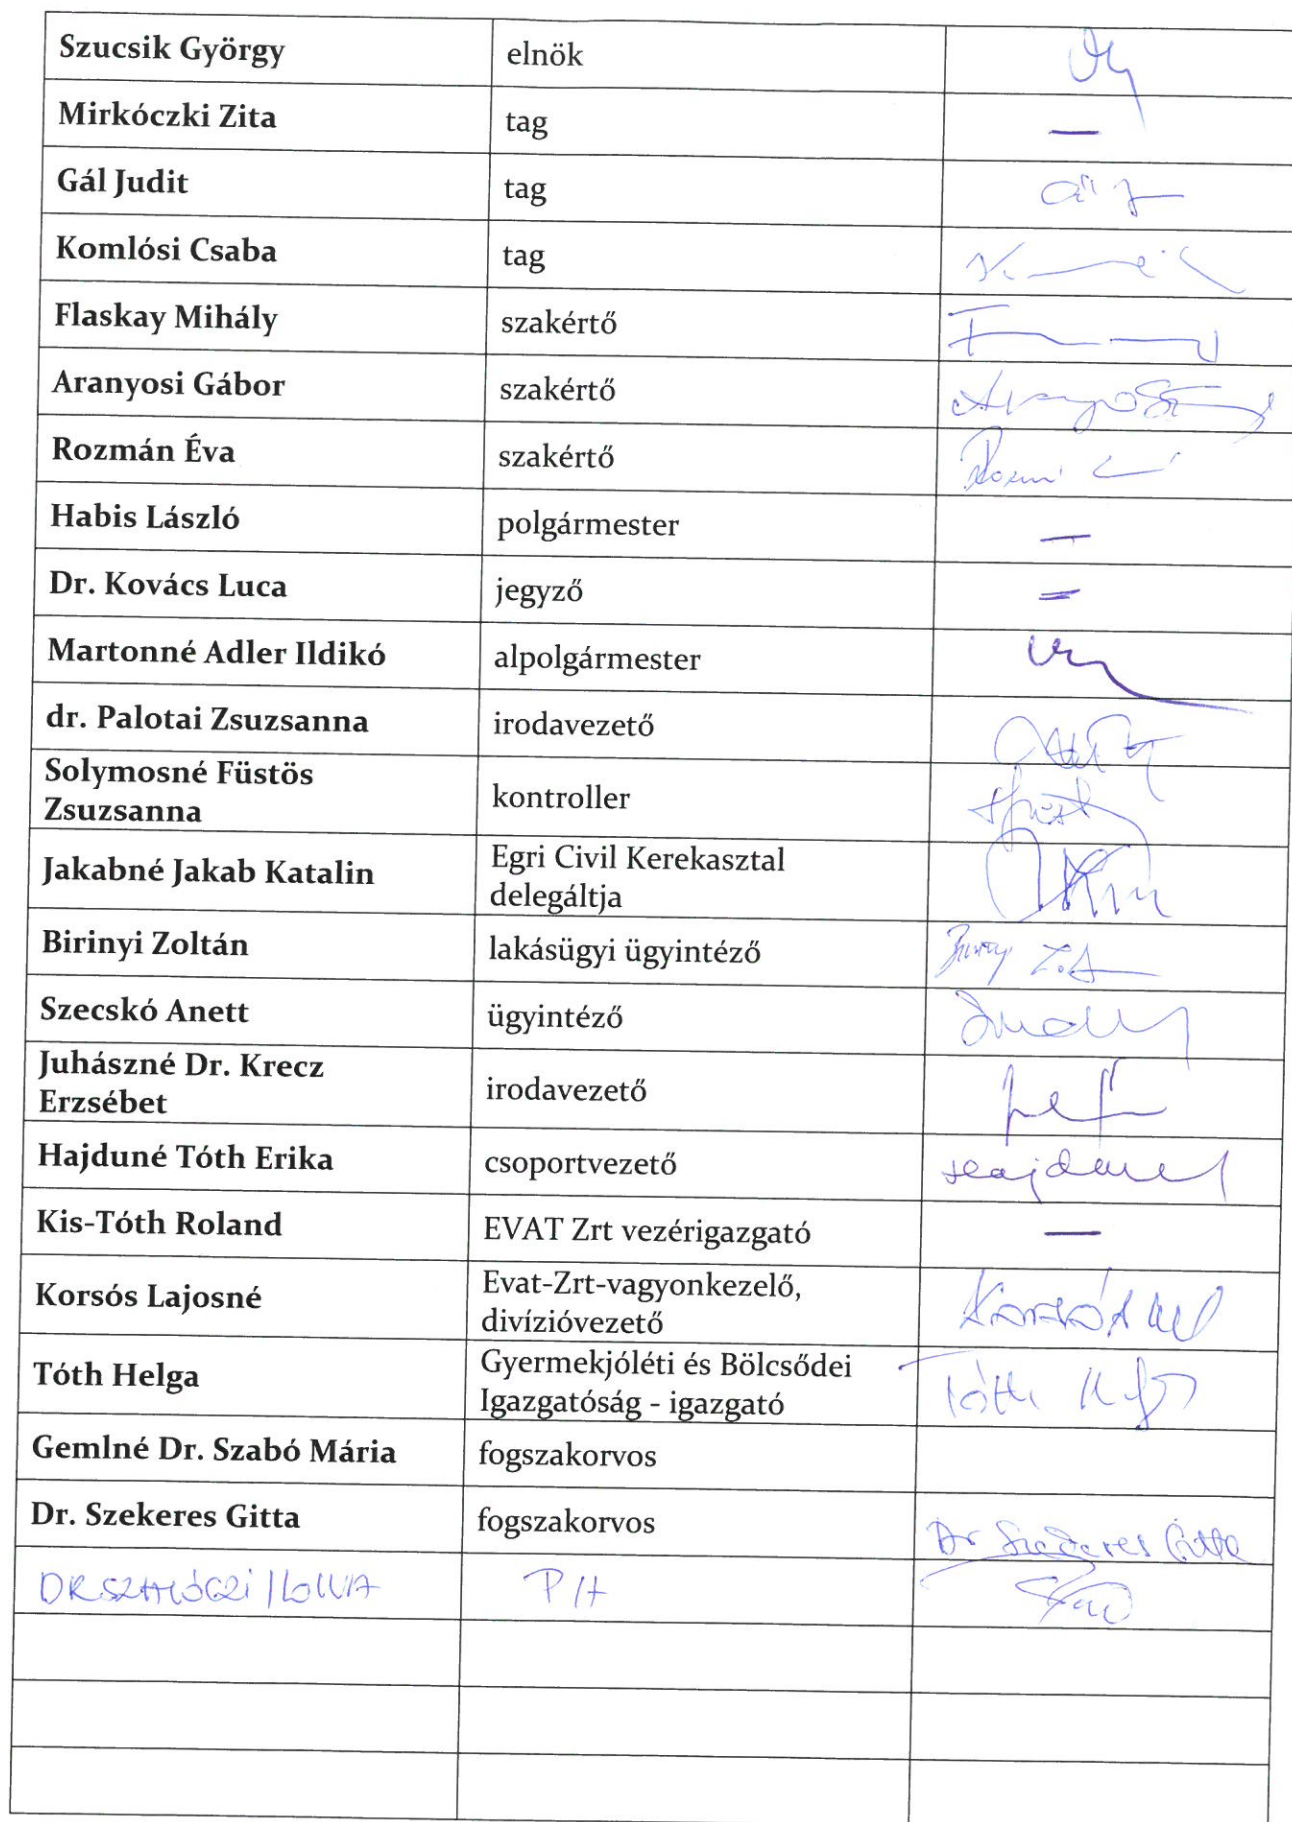 Szucsik György elnök
Mirkóczki Zita tag —
Gál Judit tag
Komlósi Csaba tag
Flaskay Mihály szakértő
Aranyosi Gábor szakértő
Rozmán Éva szakértő
Habis László polgármester —
Dr. Kovács Luca jegyző
Martonné Adler Ildikó alpolgármester
dr. Palotai Zsuzsanna irodavezető
Solymosné Füstös
Zsuzsanna
kontroller
Jakabné Jakab Katalin
Egri Civil Kerekasztal
delegáltja
Birinyi Zoltán lakásügyi ügyintéző
Szecskó Anett ügyintéző
Juhászné Dr. Krecz
Erzsébet
irodavezető
Hajduné Tóth Erika csoportvezető
Kis-Tóth Roland EVAT Zrt vezérigazgató —
Korsós Lajosné
Evat-Zrt-vagyonkezelő,
divízióvezető
Tóth Helga
Gyermekjóléti és Bölcsődei
Igazgatóság - igazgató
Tóth
Gemlné Dr. Szabó Mária fogszakorvos
Dr. Szekeres Gitta fogszakorvos Dr Szekeres Gitta
PH